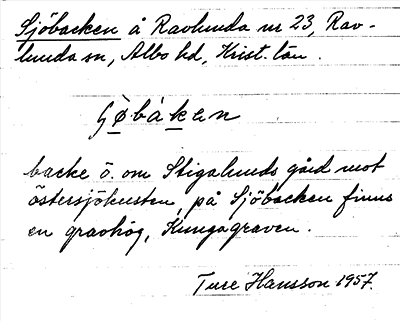 Sjöbacken å Ravlunda nr 23, Rav-
lunda sn, Albo hd, Krist. län.
backe ö. om Stigalunds gård mot
östersjökusten, på Sjöbacken finns
en gravhög, Kungagraven.
Ture Hansson 1957.